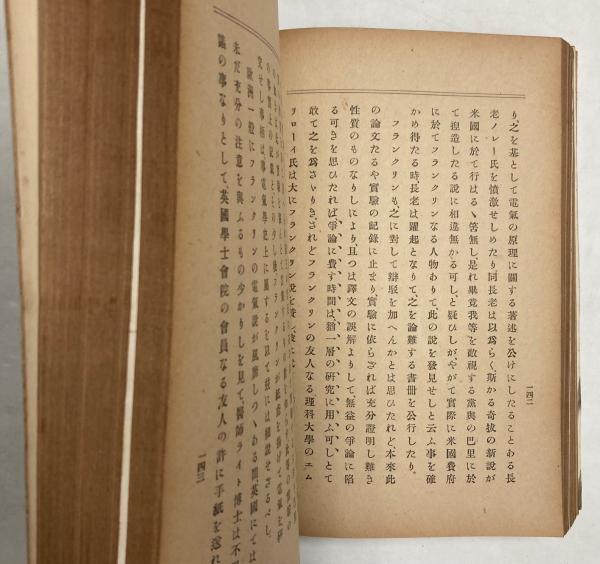 一四二
り、之を基として電氣の原理に關する著述を公けにしたることある長
老ノレー氏を憤激せしめたり同長老は以爲らく、斯かる奇抜の新説が
米國に於て行はるゝ筈無し、是れ畢竟我等を敵視する黨與の巴里に於
て捏造したる説に相違無かる可し、と疑ひしが、やがて實際に米國費府
に於てフランクリンなる人物ありて、此の説を發見せしと云ふ事を確
かめ得たる時、長老は躍起となりて、之を論難する書冊を公行したり。
フランクリンも、之に對して辯駁を加へんかとは思ひたれど、本來此
の論文たるや實驗の記錄に止まり實驗に依らざれば充分證明し難き
性質のものなりしにより、且つは譯文の誤解よりして、無益の爭論に陷
る可きを思ひたれば、爭論に費す時間は、猶一層の研究に用ふ可しとて
敢て之を爲さゞりき、されどフランクリンの友人なる理科大學のエム
リローイ氏は大にフランクリン
歐洲一般にフランクリンの電氣説が風靡しつゝある間、英國にては
未だ充分の注意を與ふるもの少かりしを見て、醫師ライト博士は不思
議の事なりとして、英國學士會院の會員なる友人の許に手紙を送れ
一四三